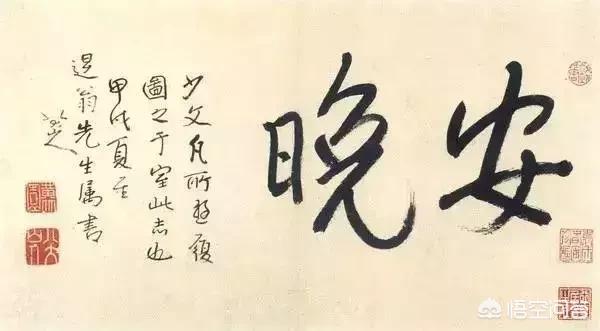 安晚
少文凡所遊履
圖之于室此志也
甲戌夏至
退翁先生属書
八大山人
悟空问答